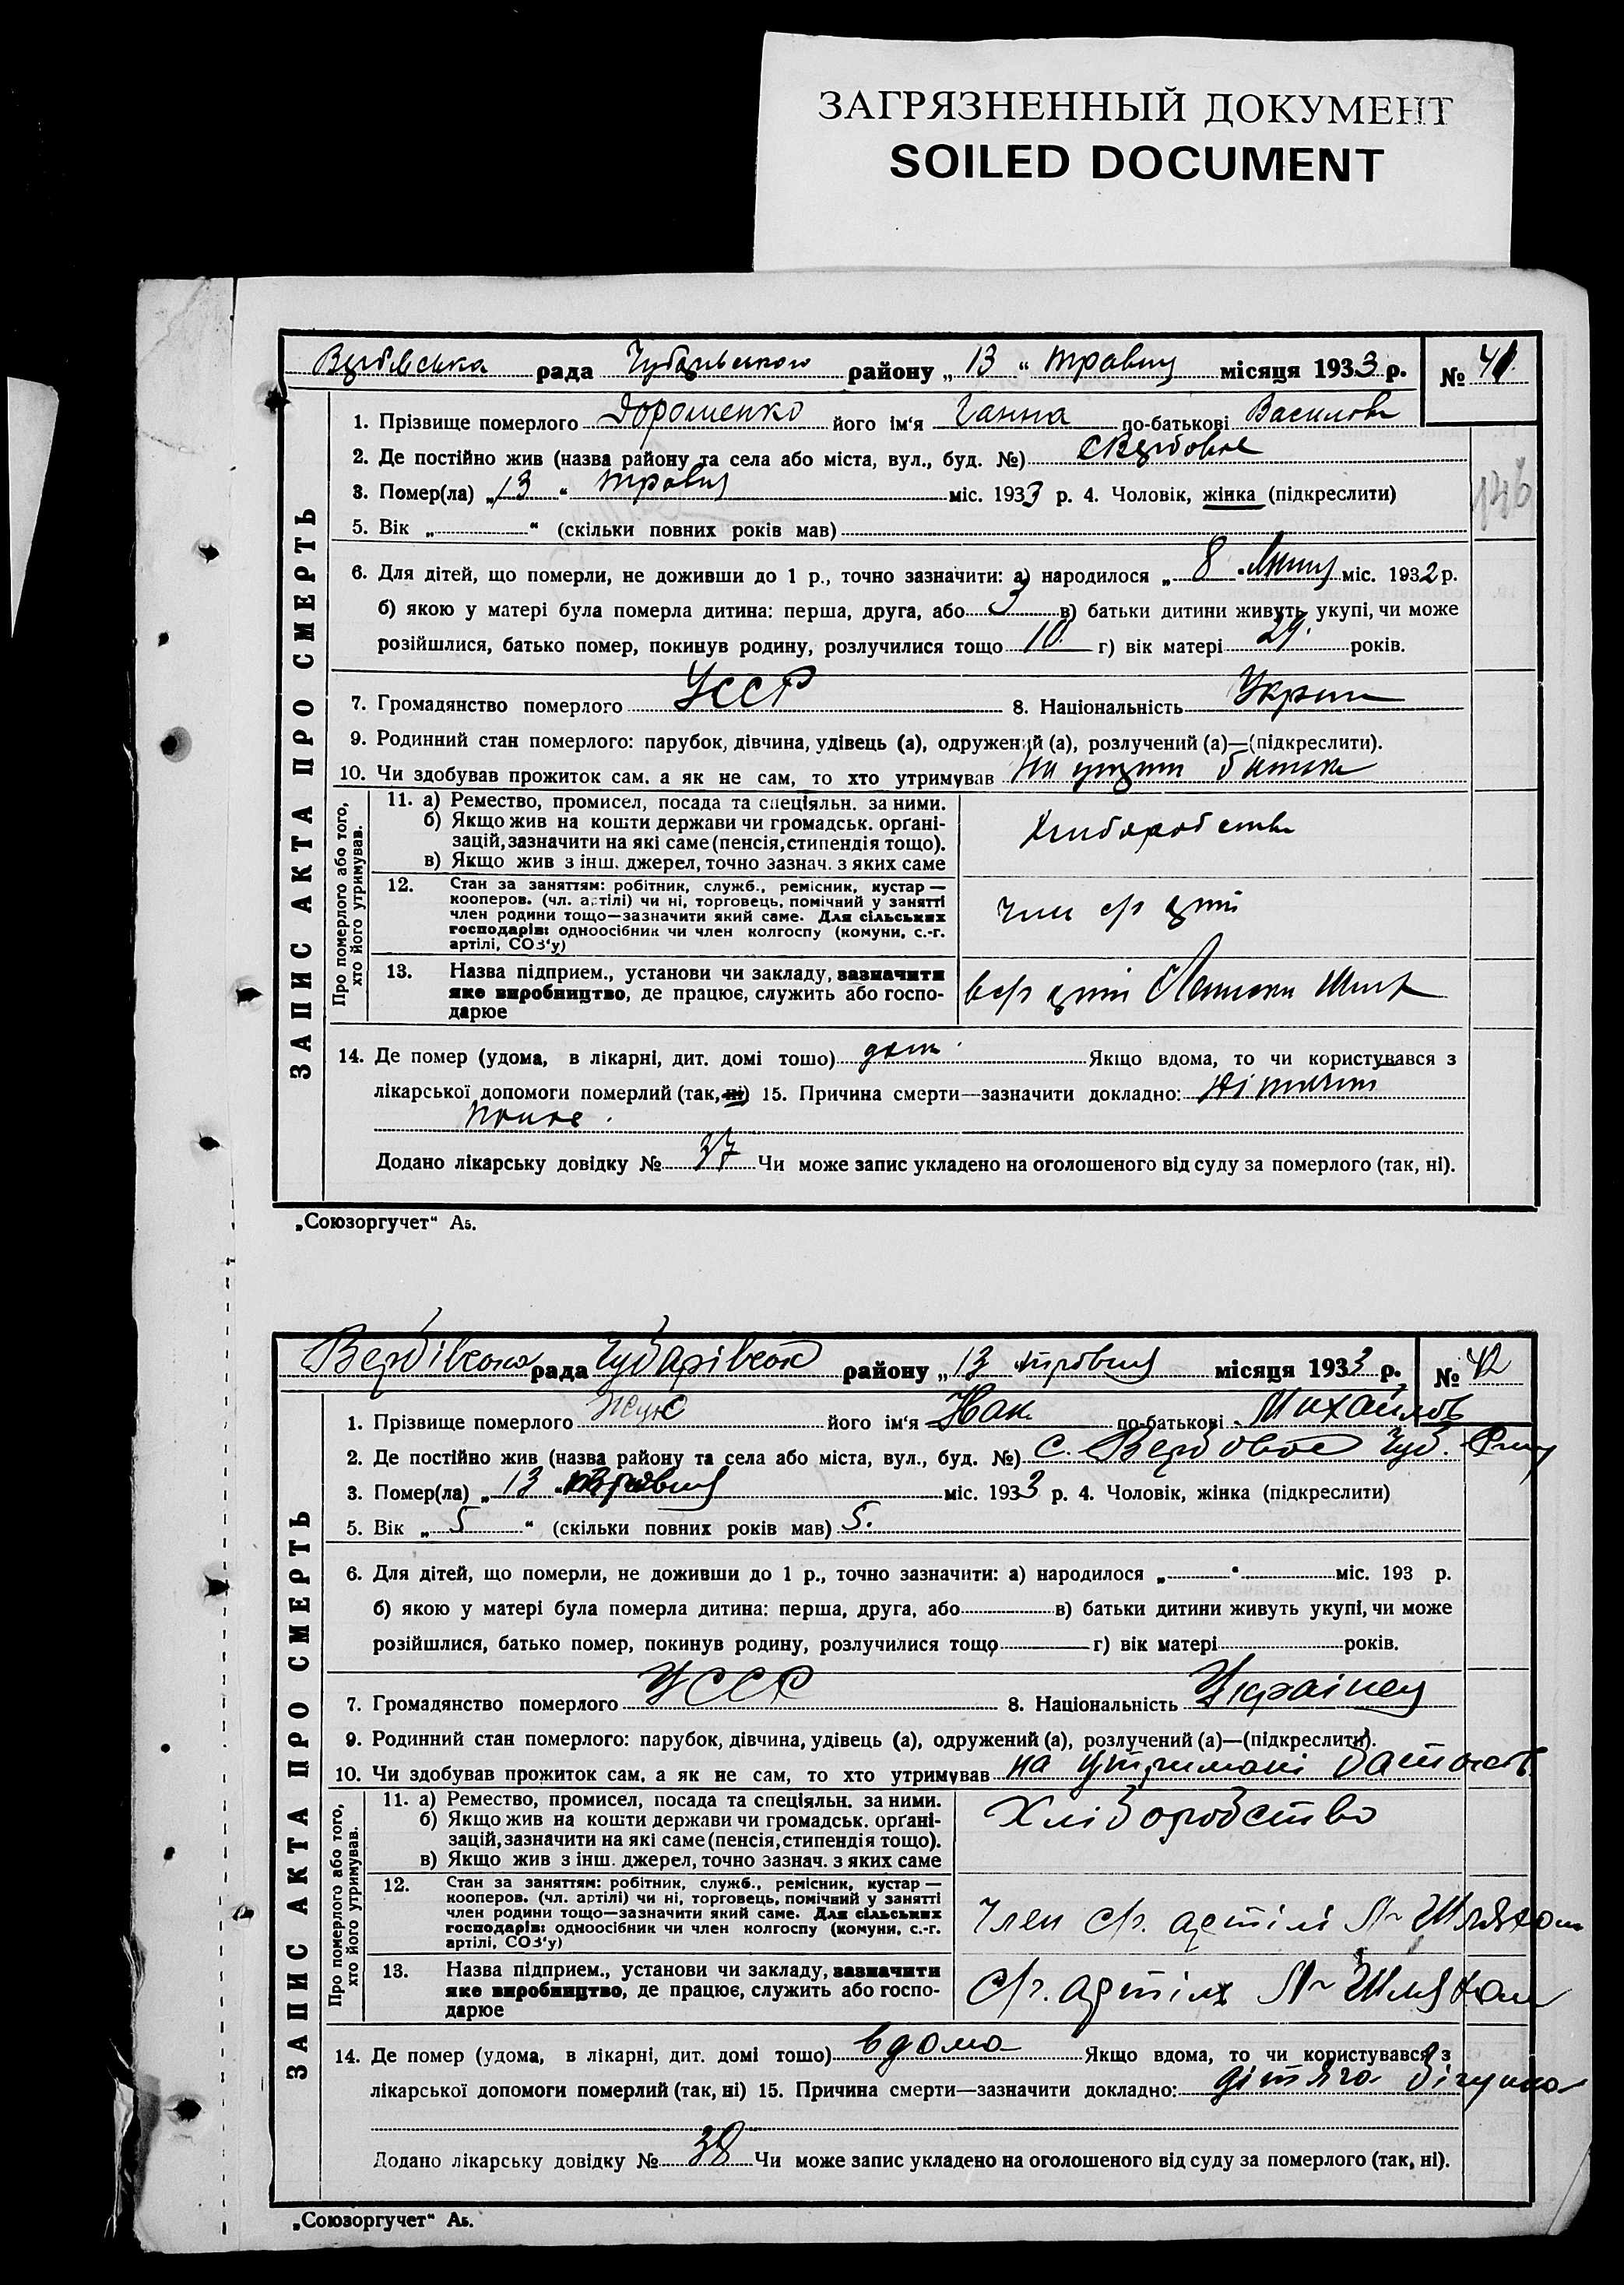 ЗАГРЯЗНЕННЫЙ ДОКУМЕНТ
SOILED DOCUMENT
рада района „ 13 “ травня місяця 1933 р. № 41.
ЗАПИС АКТА ПРО СМЕРТЬ
1. Прізвище померлого Дорошенко його ім'я Ганна по-батькові Василівн
2. Де постійно жив (назва району та села або міста, вул., буд. №)
3. Помер(ла) „ 13 “ травня міс. 1933 р. 4. Чоловік, жінка (підкреслити)
5. Вік „ “ (скільки повних років мав)
6. Для дітей, що померли, не доживши до 1 р., точно зазначити: а) народилося „ 8 “ міс. 1932 р.
б) якою у матері була померла дитина: перша, друга, або 3 в) батьки дитини живуть укупі, чи може
розійшлися, батько помер, покинув родину, розлучилися тощо 10. г) вік матері 29. років.
7. Громадянство померлого УССР 8. Національність
9. Родинний стан померлого: парубок, дівчина, удівець (а), одружений (а), розлучений (а)—(підкреслити).
10. Чи здобував прожиток сам, а як не сам, то хто утримував На
Про померлого або того,
хто його утримував.
11. а) Ремество, промисел, посада та спеціяльн. за ними.
б) Якщо жив на кошти держави чи громадськ. орґані-
зацій, зазначити на які саме (пенсія, стипендія тощо).
в) Якщо жив з інш. джерел, точно зазнач. з яких саме
12. Стан за заняттям: робітник, служб., ремісник, кустар —
кооперов. (чл. артілі) чи ні, торговець, помічний у занятті
член родини тощо—зазначити який саме. Для сільських
господарів: одноосібник чи член колгоспу (комуни, с.-г.
артілі, СОЗ'у)
13. Назва підприєм., установи чи закладу, зазначити
яке виробництво, де працює, служить або госпо-
дарює
14. Де помер (удома, в лікарні, дит. домі тощо) Якщо вдома, то чи користувався з
лікарської допомоги померлий (так, ні) 15. Причина смерти—зазначити докладно:
Додано лікарську довідку № 37 Чи може запис укладено на оголошеного від суду за померлого (так, ні).
„Союзоргучет“ А5.
Вербівська рада Чубарівськ району „ 13 травня місяця 1933 р. № 42
ЗАПИС АКТА ПРО СМЕРТЬ
1. Прізвище померлого його ім'я по-батькові Михайлов
2. Де постійно жив (назва району та села або міста, вул., буд. №) с. Вербовое Чуб.
3. Помер(ла) „ 13 травня міс. 1933 р. 4. Чоловік, жінка (підкреслити)
5. Вік „ 5 “ (скільки повних років мав) 5.
6. Для дітей, що померли, не доживши до 1 р., точно зазначити: а) народилося „ “ міс. 193 р.
б) якою у матері була померла дитина: перша, друга, або в) батьки дитини живуть укупі, чи може
розійшлися, батько помер, покинув родину, розлучилися тощо г) вік матері років.
7. Громадянство померлого УССР 8. Національність Українец
9. Родинний стан померлого: парубок, дівчина, удівець (а), одружений (а), розлучений (а)—(підкреслити).
10. Чи здобував прожиток сам, а як не сам, то хто утримував на утримані
Про померлого або того,
хто його утримував.
11. а) Ремество, промисел, посада та спеціяльн. за ними.
б) Якщо жив на кошти держави чи громадськ. орґані-
зацій, зазначити на які саме (пенсія, стипендія тощо).
в) Якщо жив з інш. джерел, точно зазнач. з яких саме
Хліборобство
12. Стан за заняттям: робітник, служб., ремісник, кустар —
кооперов. (чл. артілі) чи ні, торговець, помічний у занятті
член родини тощо—зазначити який саме. Для сільських
господарів: одноосібник чи член колгоспу (комуни, с.-г.
артілі, СОЗ'у)
Член с/г. артілі
13. Назва підприєм., установи чи закладу, зазначити
яке виробництво, де працює, служить або госпо-
дарює
с/г.
14. Де помер (удома, в лікарні, дит. домі тощо) вдома Якщо вдома, то чи користувався з
лікарської допомоги померлий (так, ні) 15. Причина смерти—зазначити докладно: дітяча
Додано лікарську довідку № 38 Чи може запис укладено на оголошеного від суду за померлого (так, ні).
„Союзоргучет“ А5.